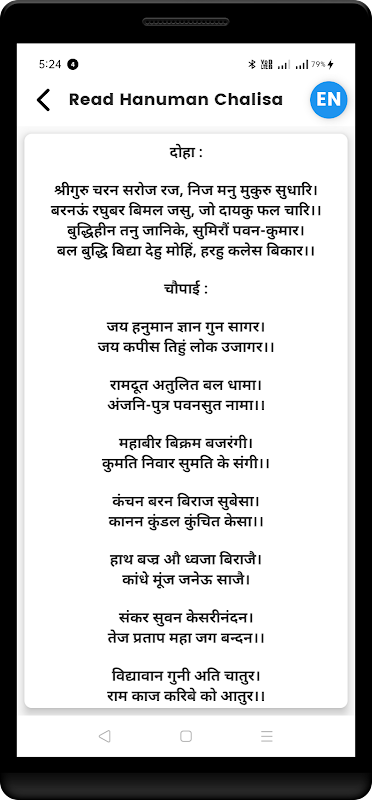 5:24 4 79%
Read Hanuman Chalisa EN
दोहा :
श्रीगुरु चरन सरोज रज, निज मनु मुकुरु सुधारि।
बरनऊं रघुबर बिमल जसु, जो दायकु फल चारि।।
बुद्धिहीन तनु जानिके, सुमिरौं पवन-कुमार।
बल बुद्धि बिद्या देहु मोहिं, हरहु कलेस बिकार।।
चौपाई :
जय हनुमान ज्ञान गुन सागर।
जय कपीस तिहुं लोक उजागर।।
रामदूत अतुलित बल धामा।
अंजनि-पुत्र पवनसुत नामा।।
महाबीर बिक्रम बजरंगी।
कुमति निवार सुमति के संगी।।
कंचन बरन बिराज सुबेसा।
कानन कुंडल कुंचित केसा।।
हाथ बज्र औ ध्वजा बिराजै।
कांधे मूंज जनेऊ साजै।
संकर सुवन केसरीनंदन।
तेज प्रताप महा जग बन्दन।।
विद्यावान गुनी अति चातुर।
राम काज करिबे को आतुर।।